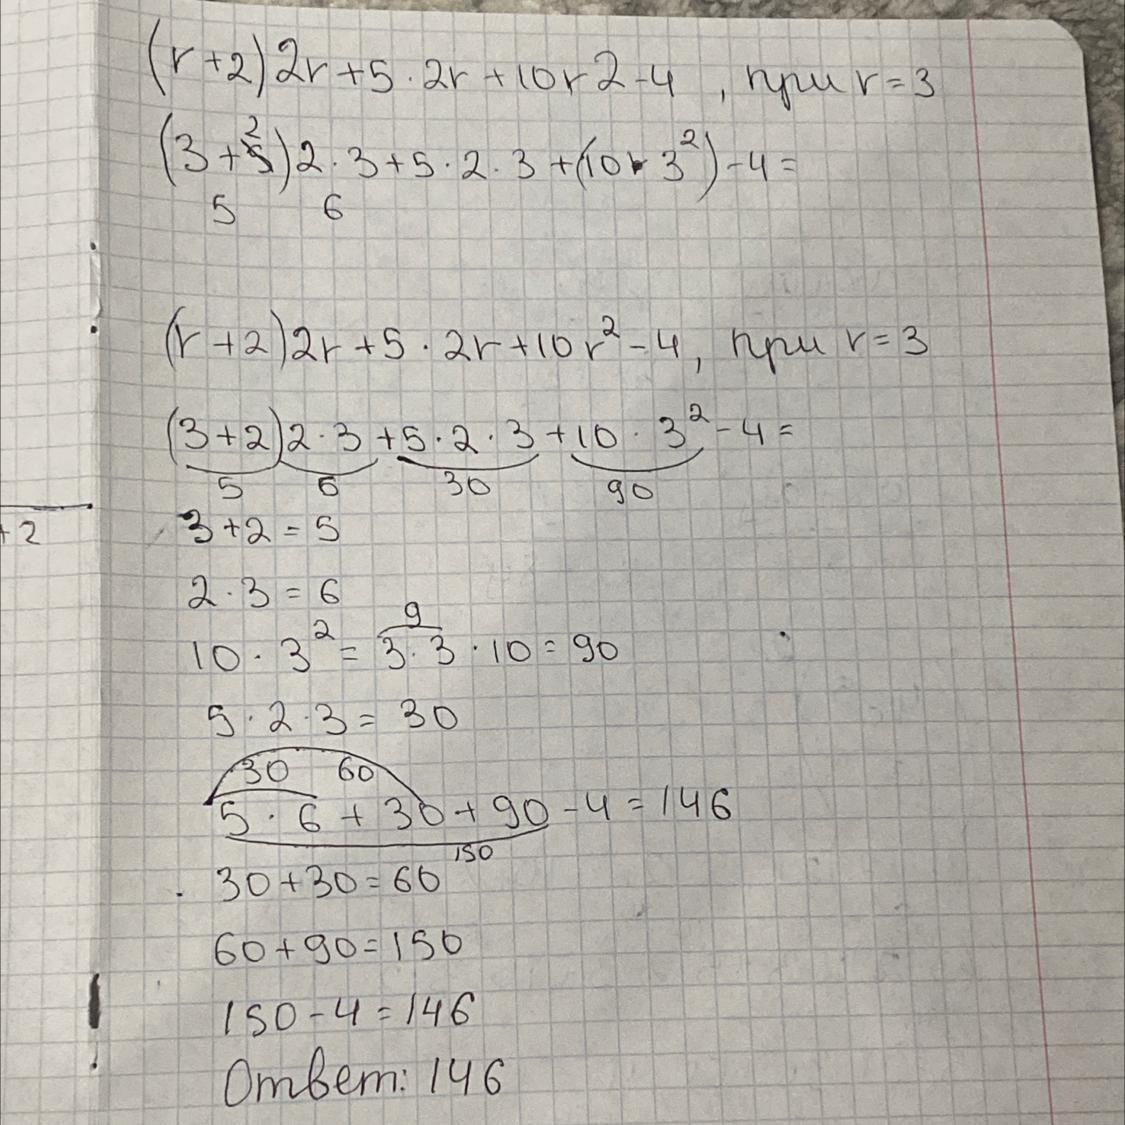 (r+2)2r+5·2r+10r2-4, при r=3
2
(3+5)2·3+5·2·3+(10·3²)-4=
5 6
(r+2)2r+5·2r+10r²-4, при r=3
(3+2)2·3+5·2·3+10·3²-4=
5 6 30 90
+2
3+2=5
2·3=6
9
10·3²=3·3·10=90
5·2·3=30
30 60
5·6+30+90-4=146
150
30+30=60
60+90=150
150-4=146
Ответ: 146